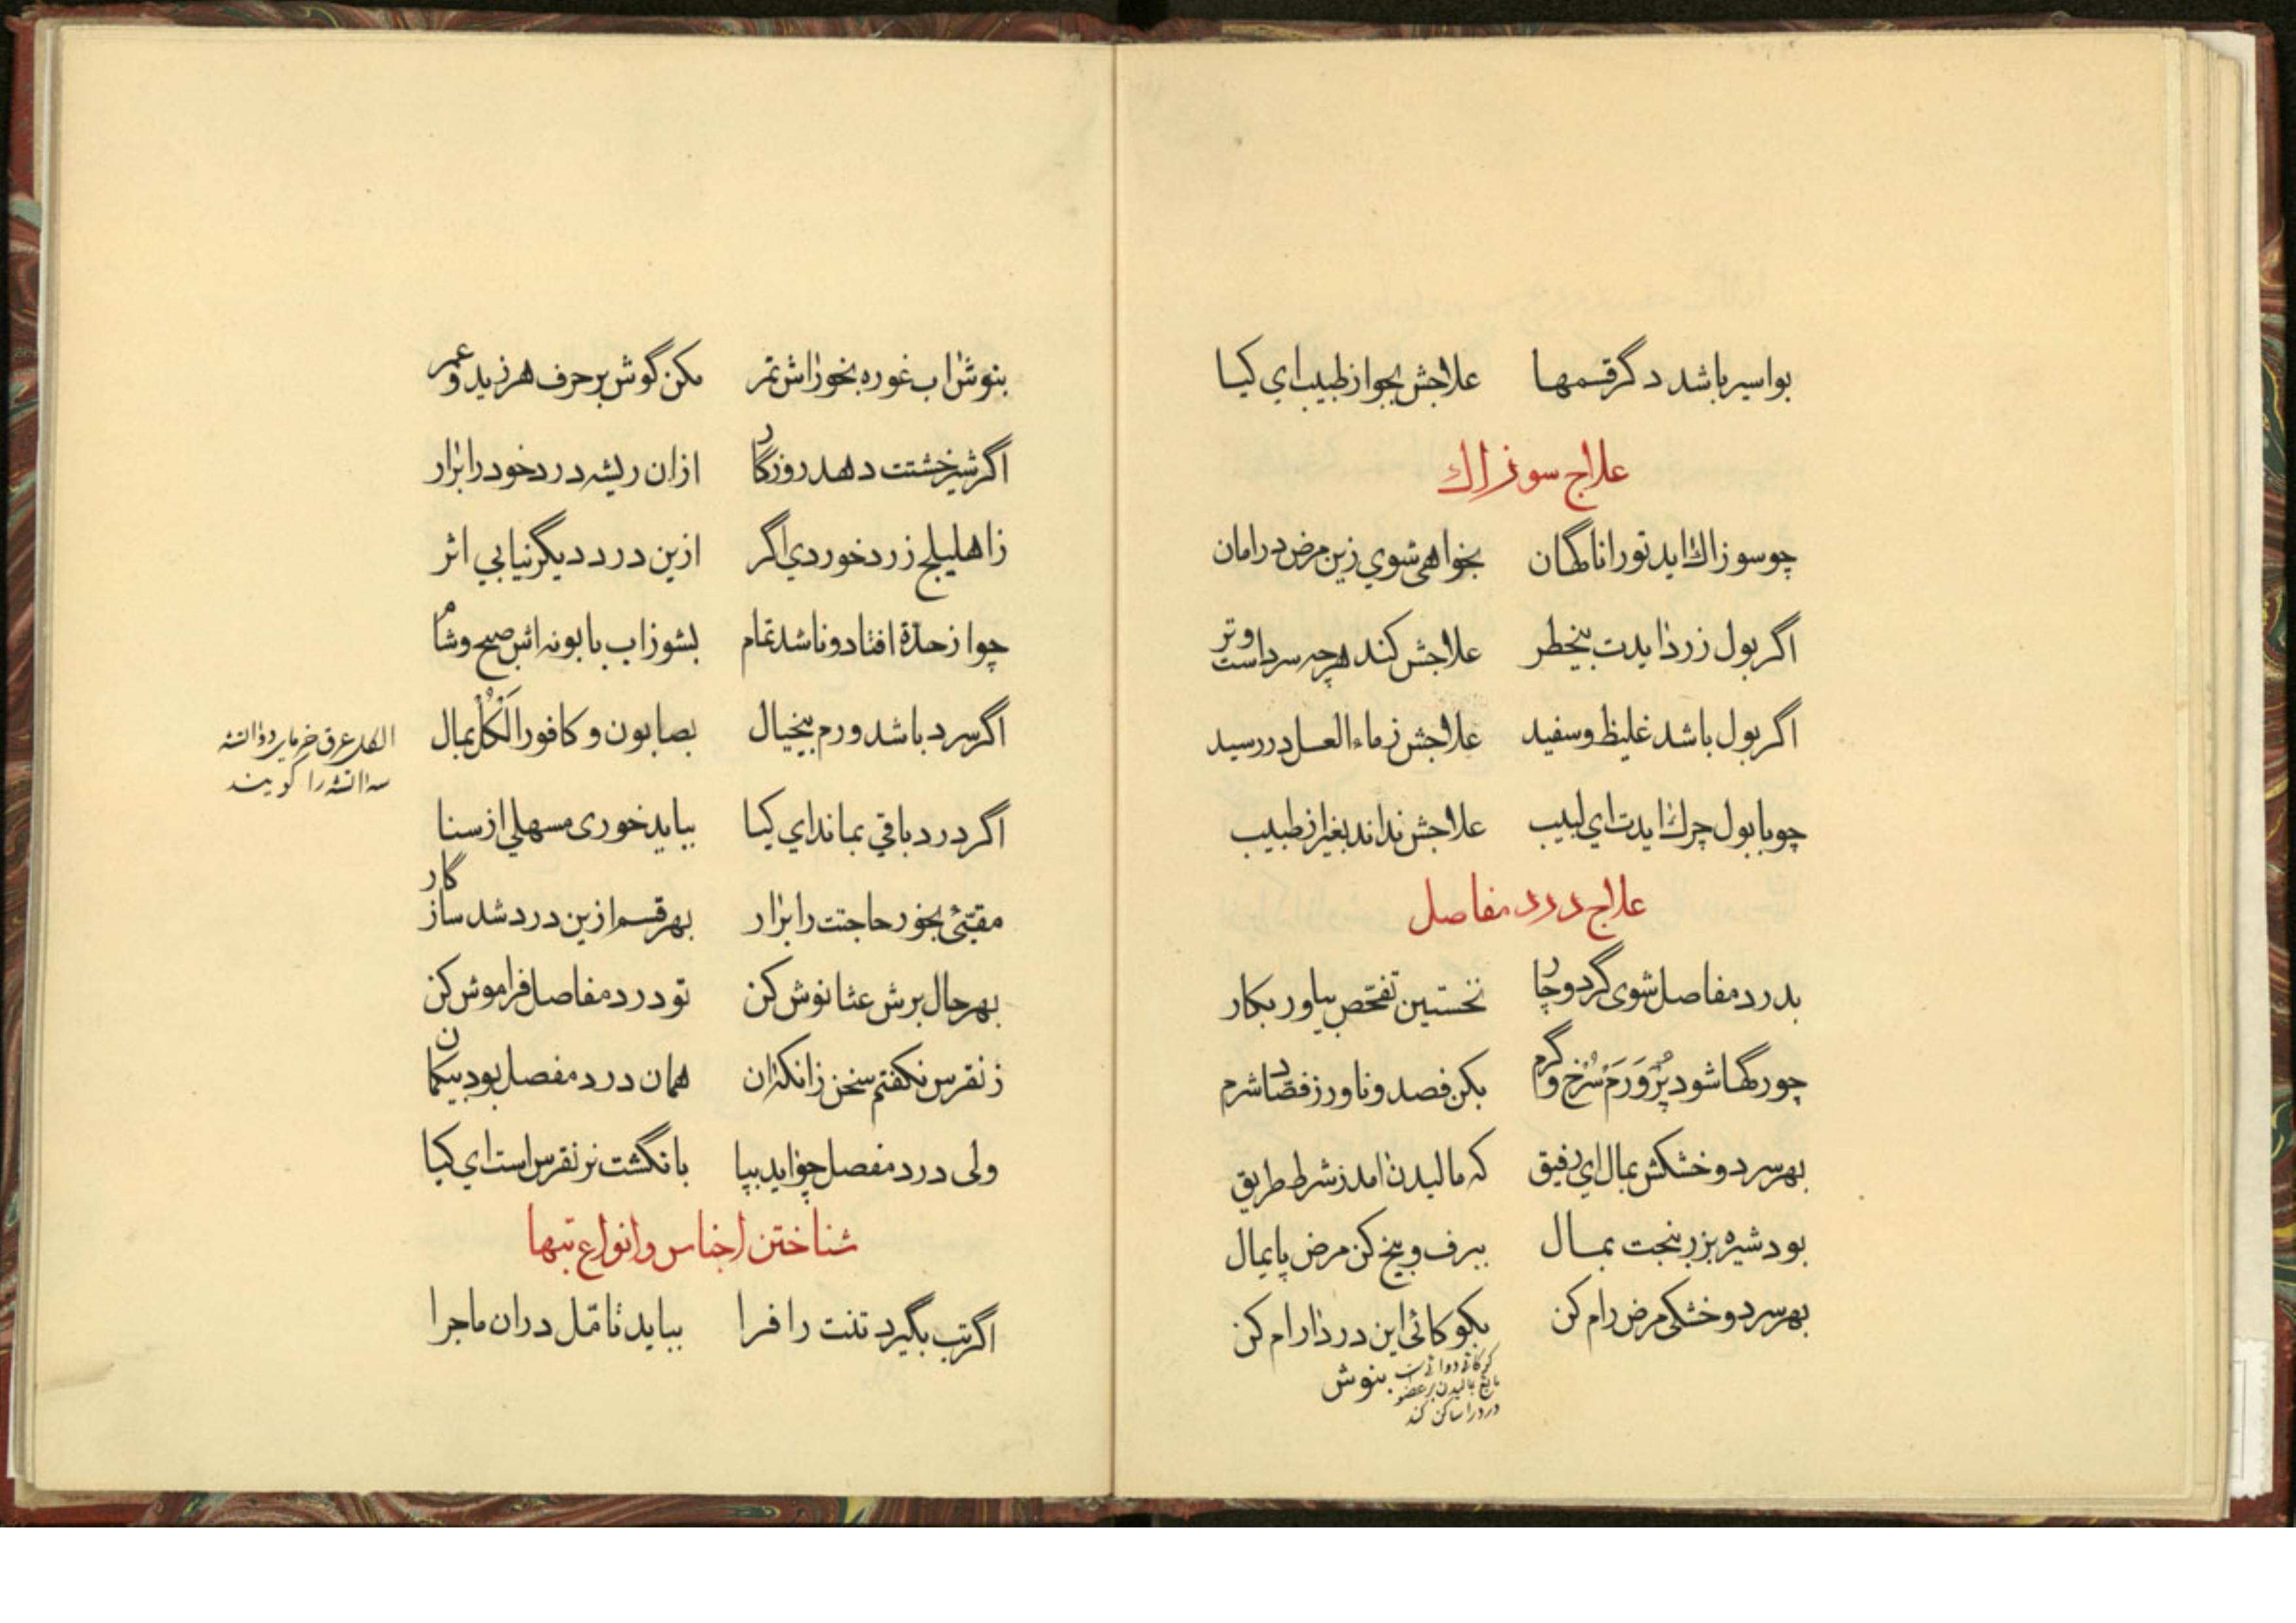 بواسیر باشد دگر قسمها علاجش بجو از طبیب ای کیا
علاج سوزاك
چو سوزاك اید تو را ناگهان بخواهی شوی زین مرض در امان
اگر بول زرد ایدت بیخطر علاجش کند هرچه سرد است و تر
اگر بول باشد غلیظ و سفید علاجش ز ماء العسل در رسید
چو با بول چرك ایدت ای لبیب علاجش نداند بغیر از طبیب
علاج درد مفاصل
بدرد مفاصل شوی گر دوچار نخستین تفحّص بیاور بکار
چو رگها شود پُر وَرَم سُرخ و گرم بکن فصد و ناور ز فصّاد شرم
بهر سرد و خشکش بمال ای رفیق که مالیدن امد ز شرط طریق
بود شیره بزر بنجت بمال ببرف و بیخ کن مرض پایمال
بهر سرد و خشکی مرض رام کن بکوکائی این درد ارام کن
کوکائی دوائی است
مایع مالیدن بر عضو
درد را ساکن کند
بنوش
بنوش اب غوره بخور اش تمر مکن گوش بر حرف هر زید و عمر
اگر شیرخشتت دهد روزگار ازان ریشه درد خود را برار
ز اهلیلج زرد خوردی اگر ازین درد دیگر نیابی اثر
چو از حدّة افتاد و ناشد تمام بشوز اب بابونه اش صبح و شام
اگر سرد باشد ورم بیخیال بصابون و کافور الَکُلْ بمال
الکل عرق خرمای دو اتشه
سه اتشه را گویند
اگر درد باقی بماند ای کیا بباید خوری مسهلی از سنا
مقیّئ بخور حاجتت را برار بهر قسم ازین درد شد سازگار
بهر حال برش عشا نوش کن تو درد مفاصل فراموش کن
ز نقرس نگفتم سخن زانکه ان همان درد مفصل بود بیگمان
ولی درد مفصل چو اید بپا بانگشت نر نقرس است ای کیا
شناختن اجناس و انواع تبها
اگر تب بگیرد تنت را فرا بباید تامّل دران ماجرا